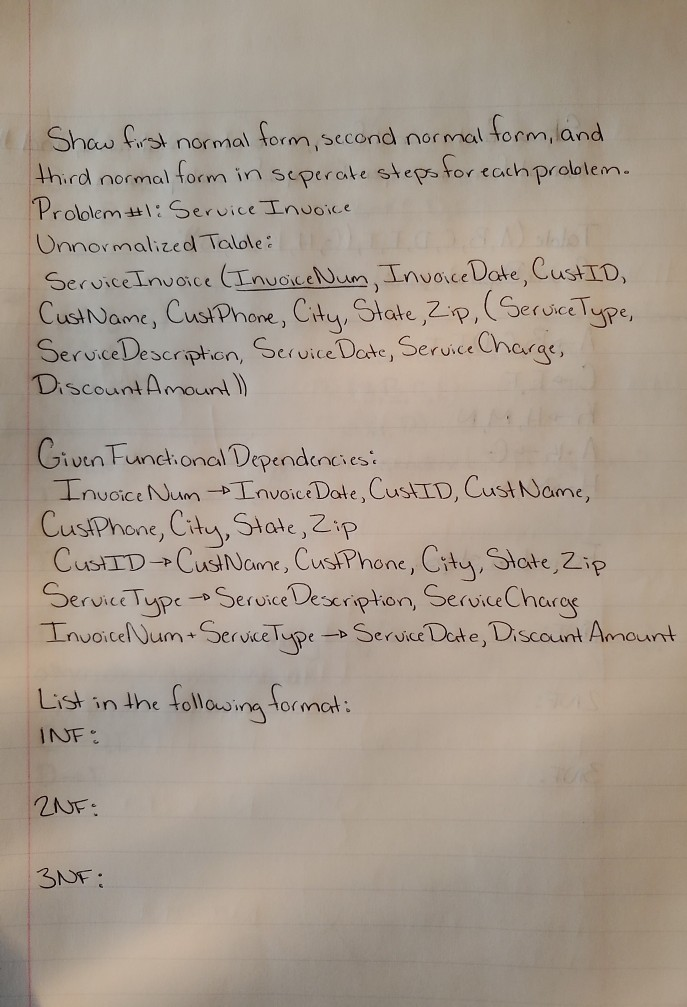 Show first normal form, second normal form, and
third normal form in seperate steps for each problem.
Problem #1: Service Invoice
Unnormalized Table:
ServiceInvoice (InvoiceNum, InvoiceDate, CustID,
CustName, CustPhone, City, State, Zip, (ServiceType,
ServiceDescription, ServiceDate, ServiceCharge,
DiscountAmount))
Given Functional Dependencies:
InvoiceNum → InvoiceDate, CustID, CustName,
CustPhone, City, State, Zip
CustID → CustName, CustPhone, City, State, Zip
ServiceType → ServiceDescription, ServiceCharge
InvoiceNum + ServiceType → ServiceDate, Discount Amount
List in the following format:
1NF:
2NF:
3NF: